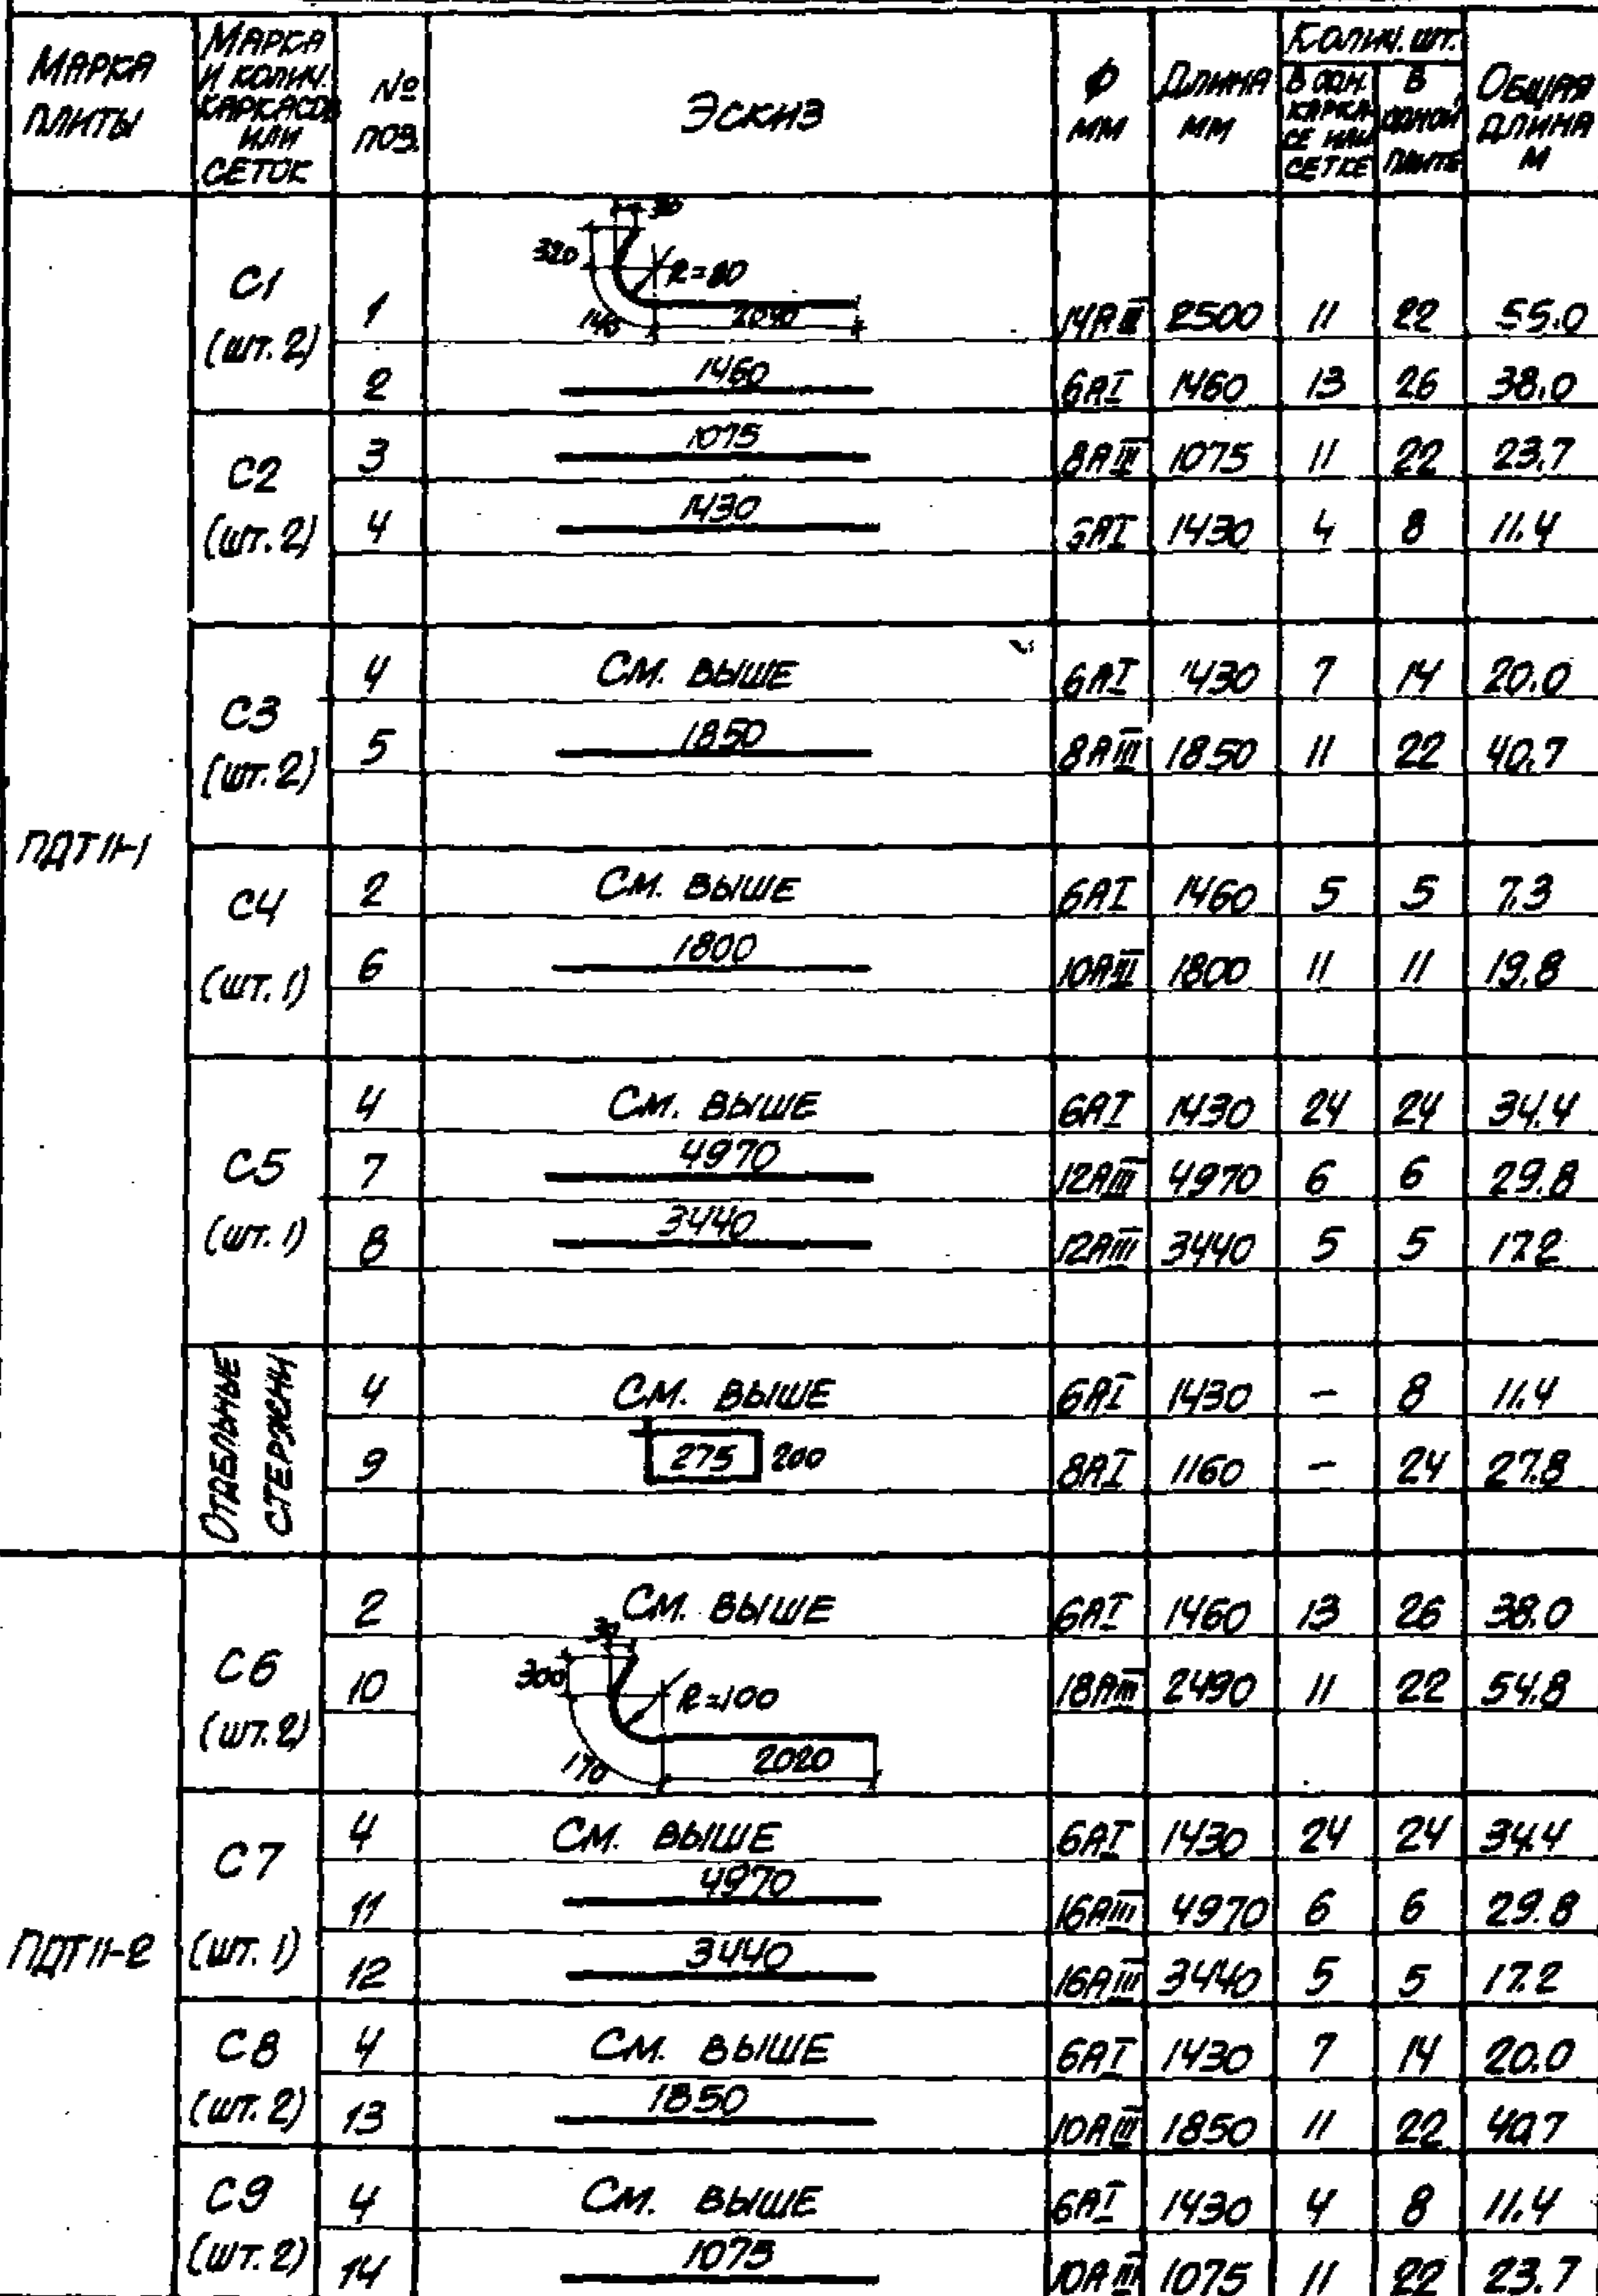 Марка плиты | Марка и колич. каркасов или сеток | № поз. | Эскиз | ф мм | Длина мм | Колич. шт. | Общая длина м
В одн. каркасе или сетке | В одной плите
ПДТ11-1
С1 (шт. 2)
30
320
R=80
140
2040
1 | 14АIII | 2500 | 11 | 22 | 55.0
2 | 1460 | 6АI | 1460 | 13 | 26 | 38.0
С2 (шт. 2)
3 | 1075 | 8АIII | 1075 | 11 | 22 | 23.7
4 | 1430 | 6АI | 1430 | 4 | 8 | 11.4
С3 (шт. 2)
4 | См. выше | 6АI | 1430 | 7 | 14 | 20.0
5 | 1850 | 8АIII | 1850 | 11 | 22 | 40.7
С4 (шт. 1)
2 | См. выше | 6АI | 1460 | 5 | 5 | 7.3
6 | 1800 | 10АIII | 1800 | 11 | 11 | 19.8
С5 (шт. 1)
4 | См. выше | 6АI | 1430 | 24 | 24 | 34.4
7 | 4970 | 12АIII | 4970 | 6 | 6 | 29.8
8 | 3440 | 12АIII | 3440 | 5 | 5 | 17.2
Отдельные стержни
4 | См. выше | 6АI | 1430 | – | 8 | 11.4
9 | 275 200 | 8АI | 1160 | – | 24 | 27.8
ПДТ11-2
С6 (шт. 2)
2 | См. выше | 6АI | 1460 | 13 | 26 | 38.0
30
300
R=100
170
2020
10 | 18АIII | 2490 | 11 | 22 | 54.8
С7 (шт. 1)
4 | См. выше | 6АI | 1430 | 24 | 24 | 34.4
11 | 4970 | 16АIII | 4970 | 6 | 6 | 29.8
12 | 3440 | 16АIII | 3440 | 5 | 5 | 17.2
С8 (шт. 2)
4 | См. выше | 6АI | 1430 | 7 | 14 | 20.0
13 | 1850 | 10АIII | 1850 | 11 | 22 | 40.7
С9 (шт. 2)
4 | См. выше | 6АI | 1430 | 4 | 8 | 11.4
14 | 1075 | 10АIII | 1075 | 11 | 22 | 23.7